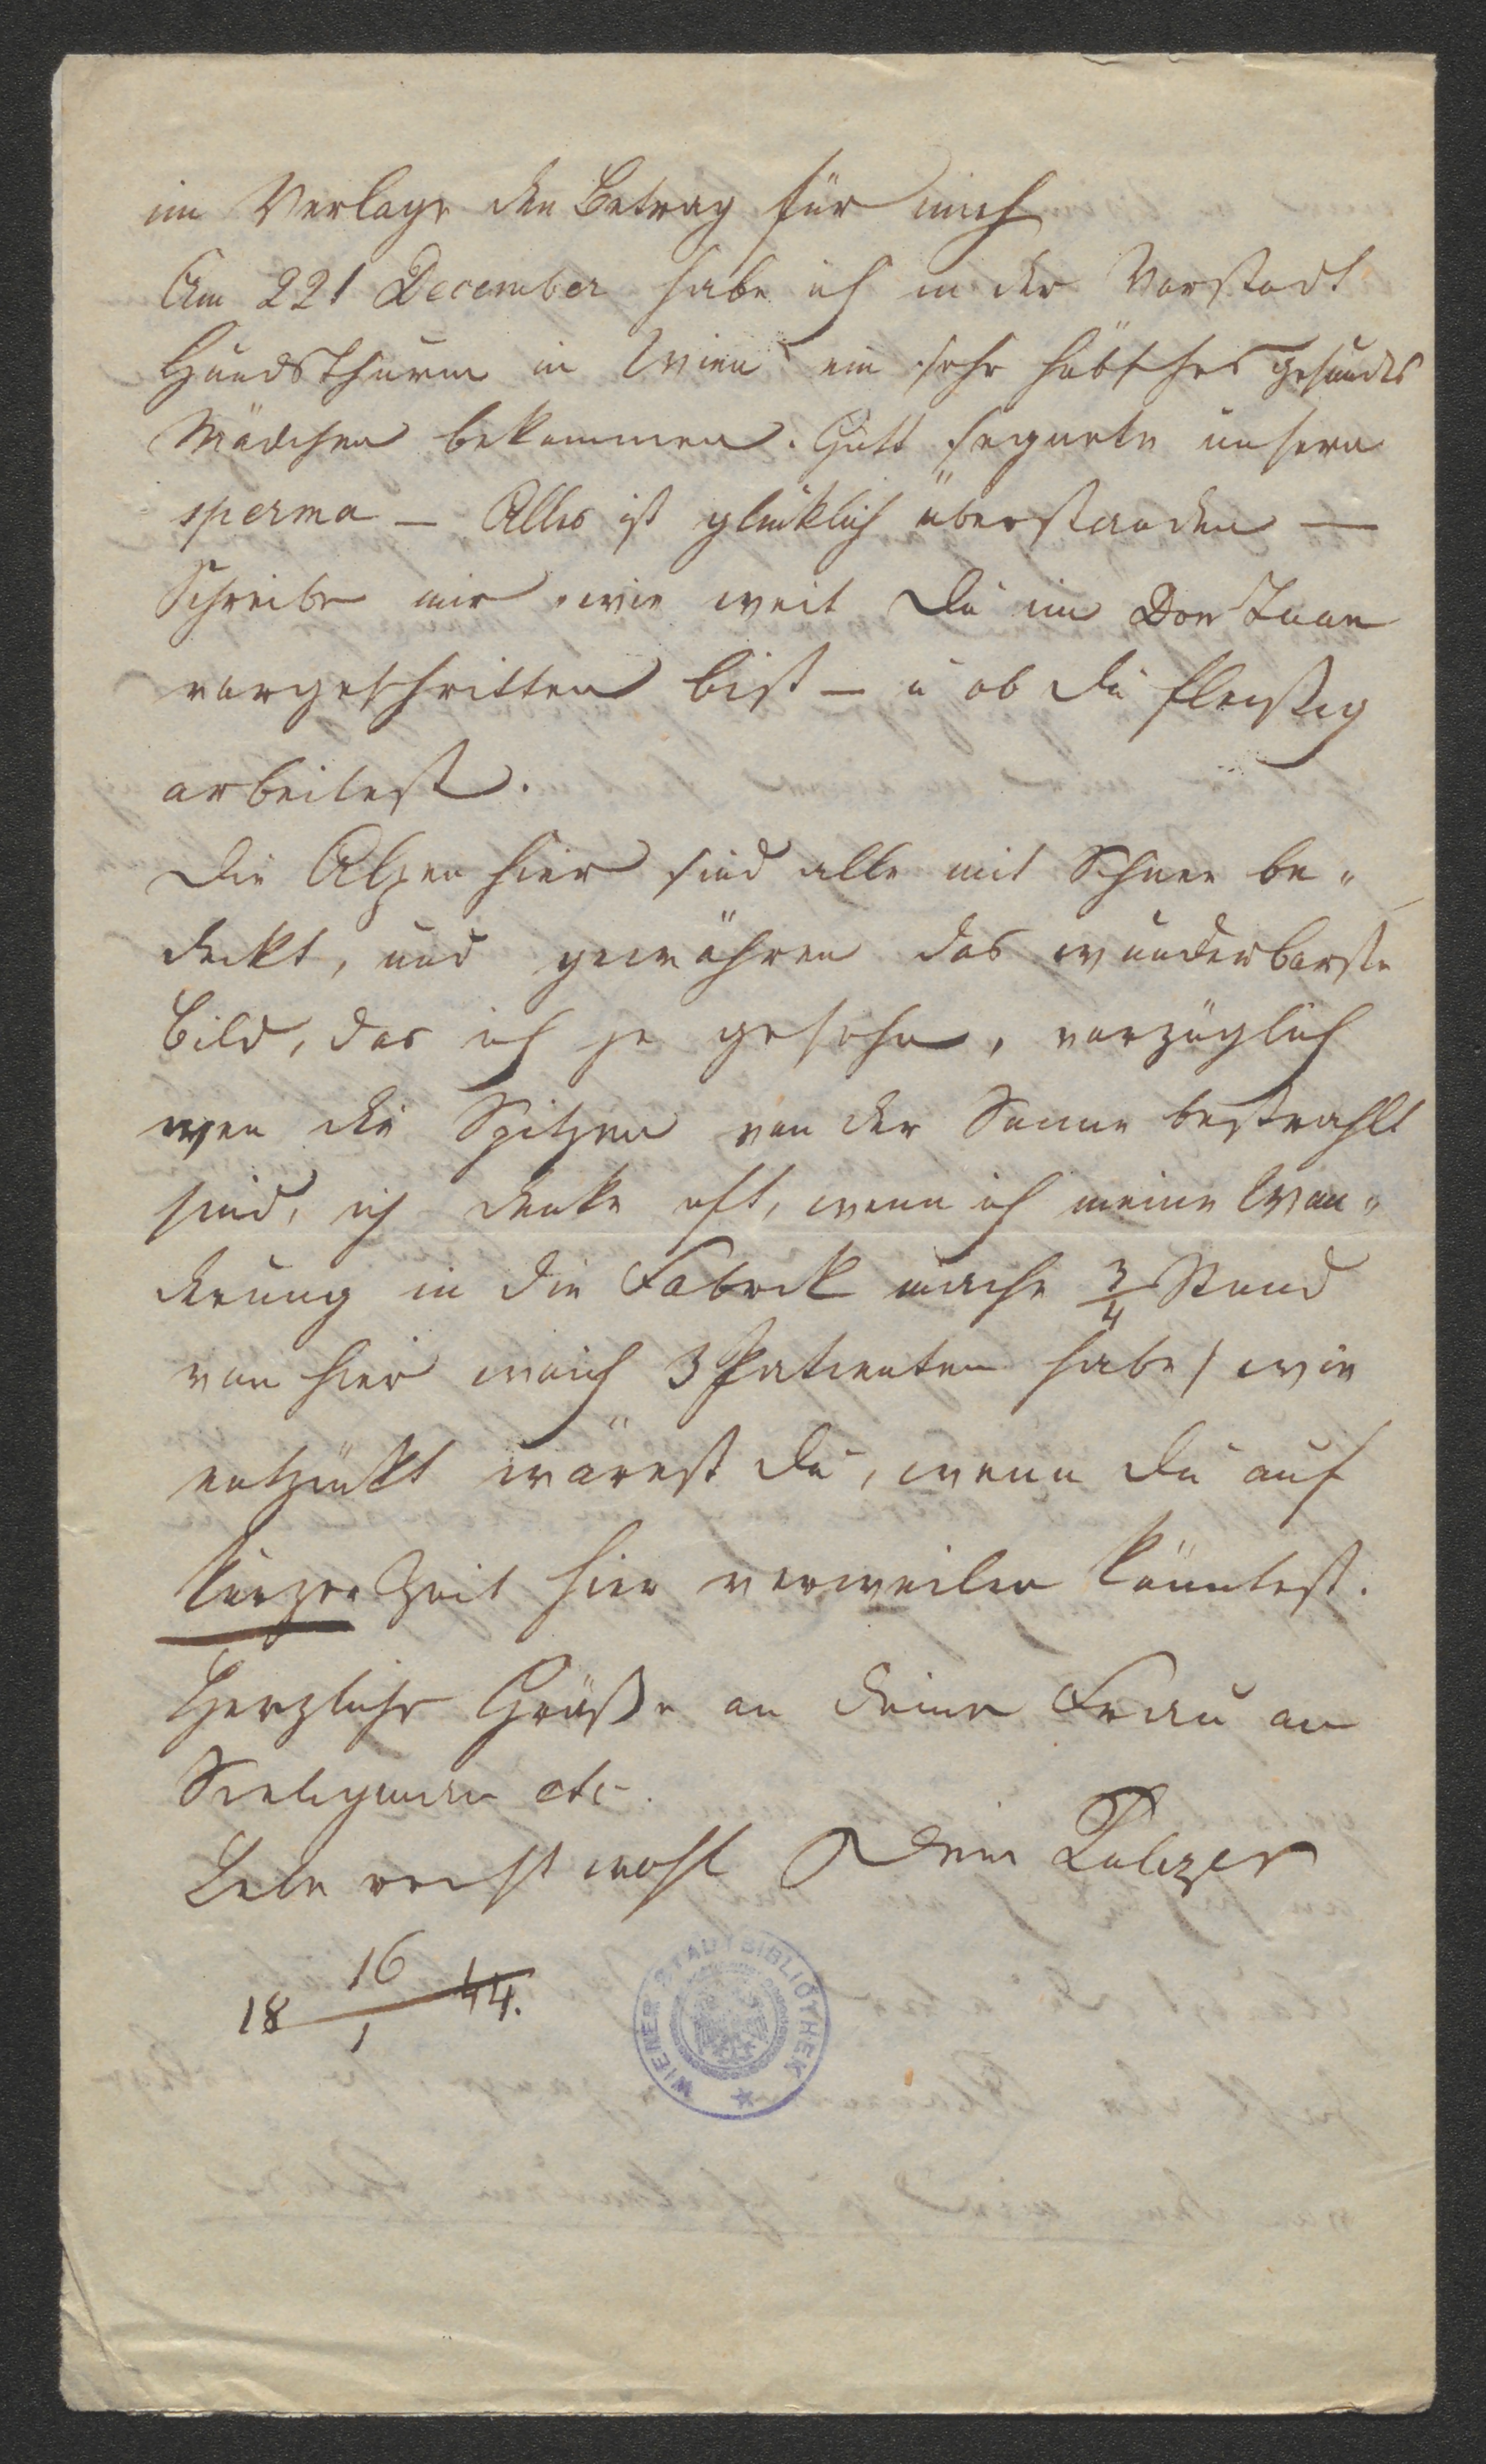 im Verlage den Betrag für mich
Am 221 December habe ich in der Vorstadt
Hundsthurm in Wien ein sehr hübsches gesundes
Mädchen bekommen. Gott segnete unsern
sperma – Alles ist glücklich überstanden –
Schreibe mir wie weit Du im Don Juan
vorgeschritten bist – u ob du fleißig
arbeitest.
Die Alpen hier sind alle mit Schnee be„
deckt, und gewähren das wunderbarste
Bild, das ich je gesehn, vorzüglich
wen die Spitzen von der Sonne bestrahlt
sind, ich denke oft, wenn ich meine Wan„
derung in die Fabrik mache 3/4 Stund
von hier wo ich 3 Patienten habe / wie
entzückt wärest Du, wenn Du auf
kurze Zeit hier verweilen könntest.
Herzliche Grüße an deine Frau an
etc.
Lebe recht wohl Dein
18 16/1 44.
WIENER STADTBIBLIOTHEK